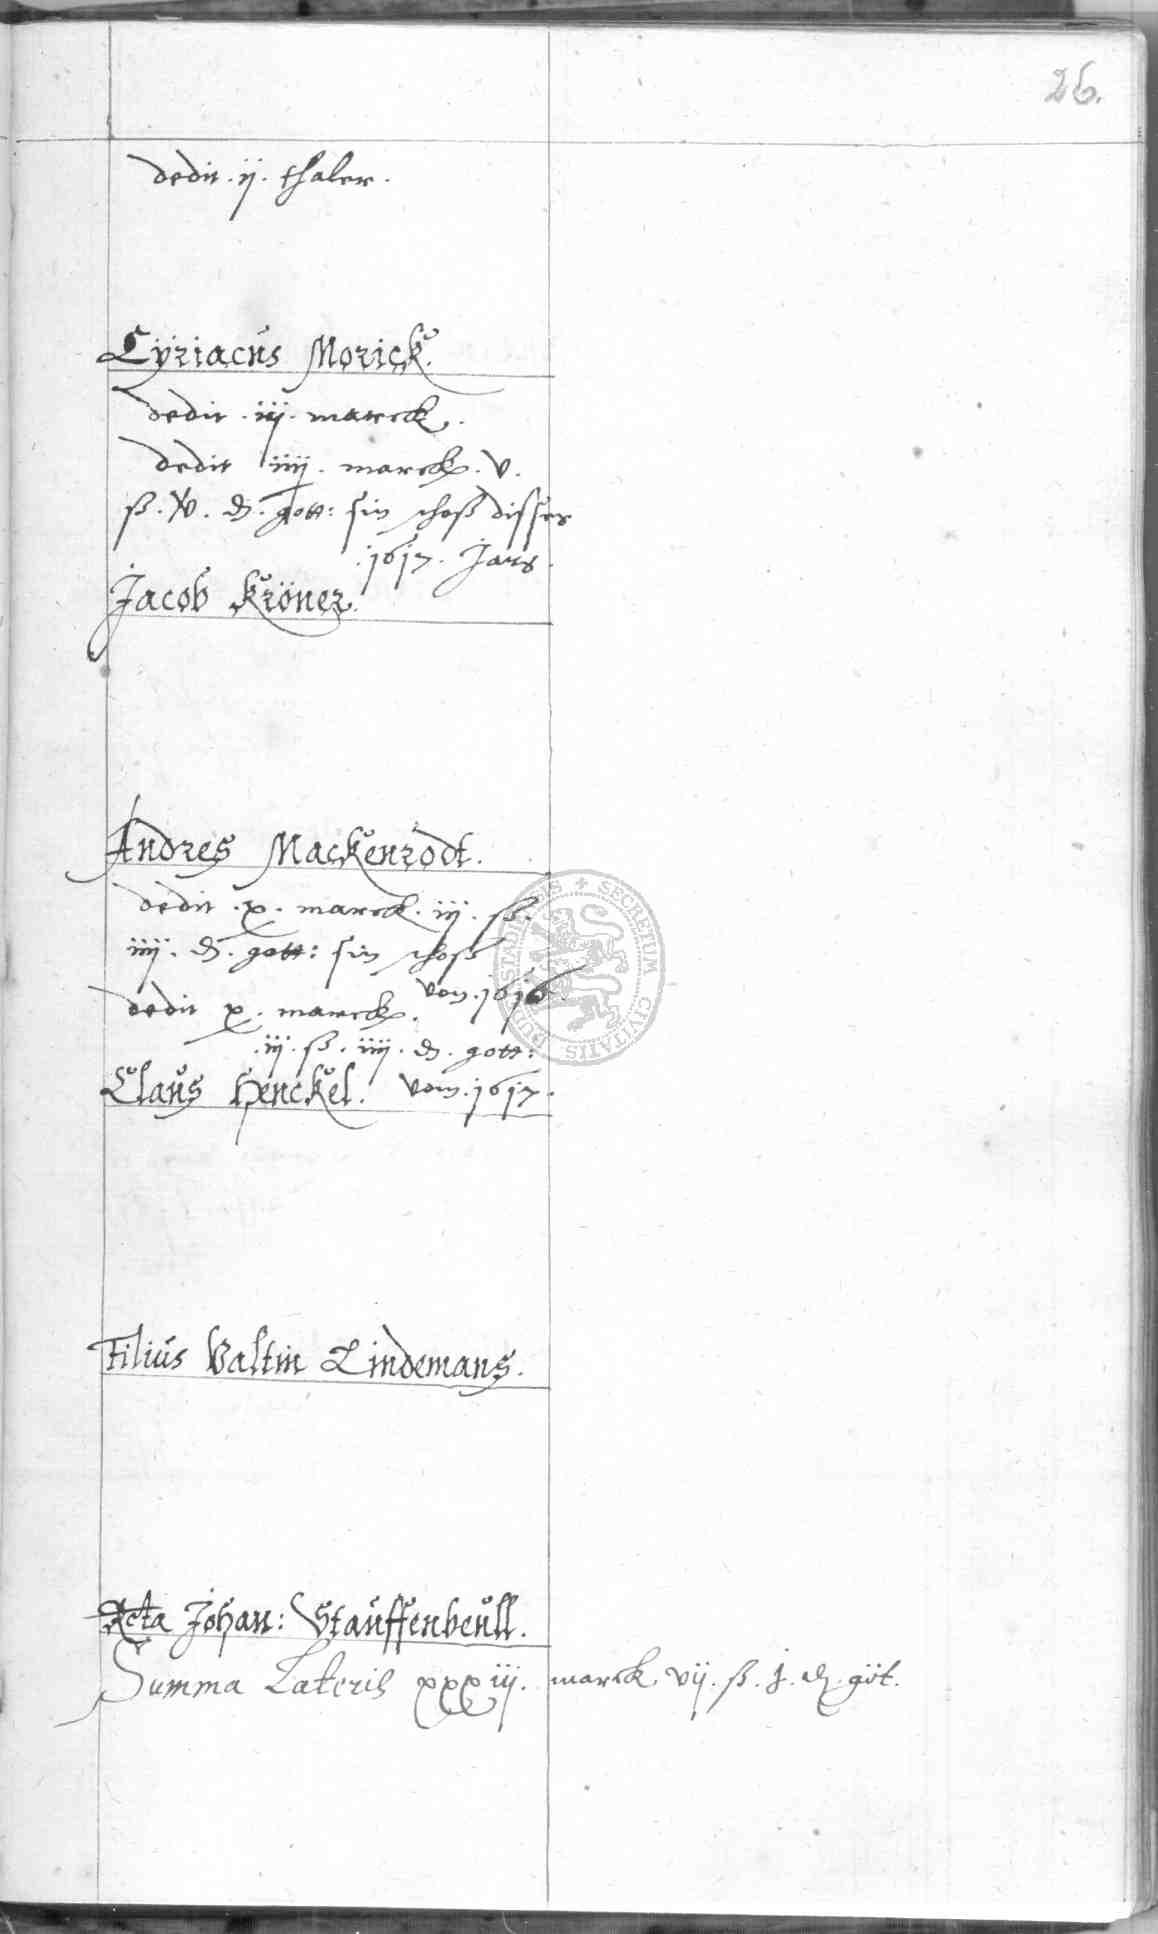 26.
dedit . ij . thaler .
Cÿriacus Morick.
dedit . iij . marck .
dedit iiij . marck . v .
ß . v . ₰ . gott : sin schoß disses
. 1617 . Jars .
Jacob Kröner .
Andres Mackenrodt .
dedit . x . marck . iij . ß .
iiij . ₰ . gott : sin schoß
vom . 1616 .
dedit x . marck .
. iij . ß . iiij . ₰ . gott :
vom . 1617 .
Claus Henckel .
Filius Valtin Lindemans .
Acta Johan : Stauffenbeull .
Summa Lateris xxxiij . marck vij . ß . j . ₰ . gót .
SECRETUM CIVITATIS DUDERSTADIENSIS